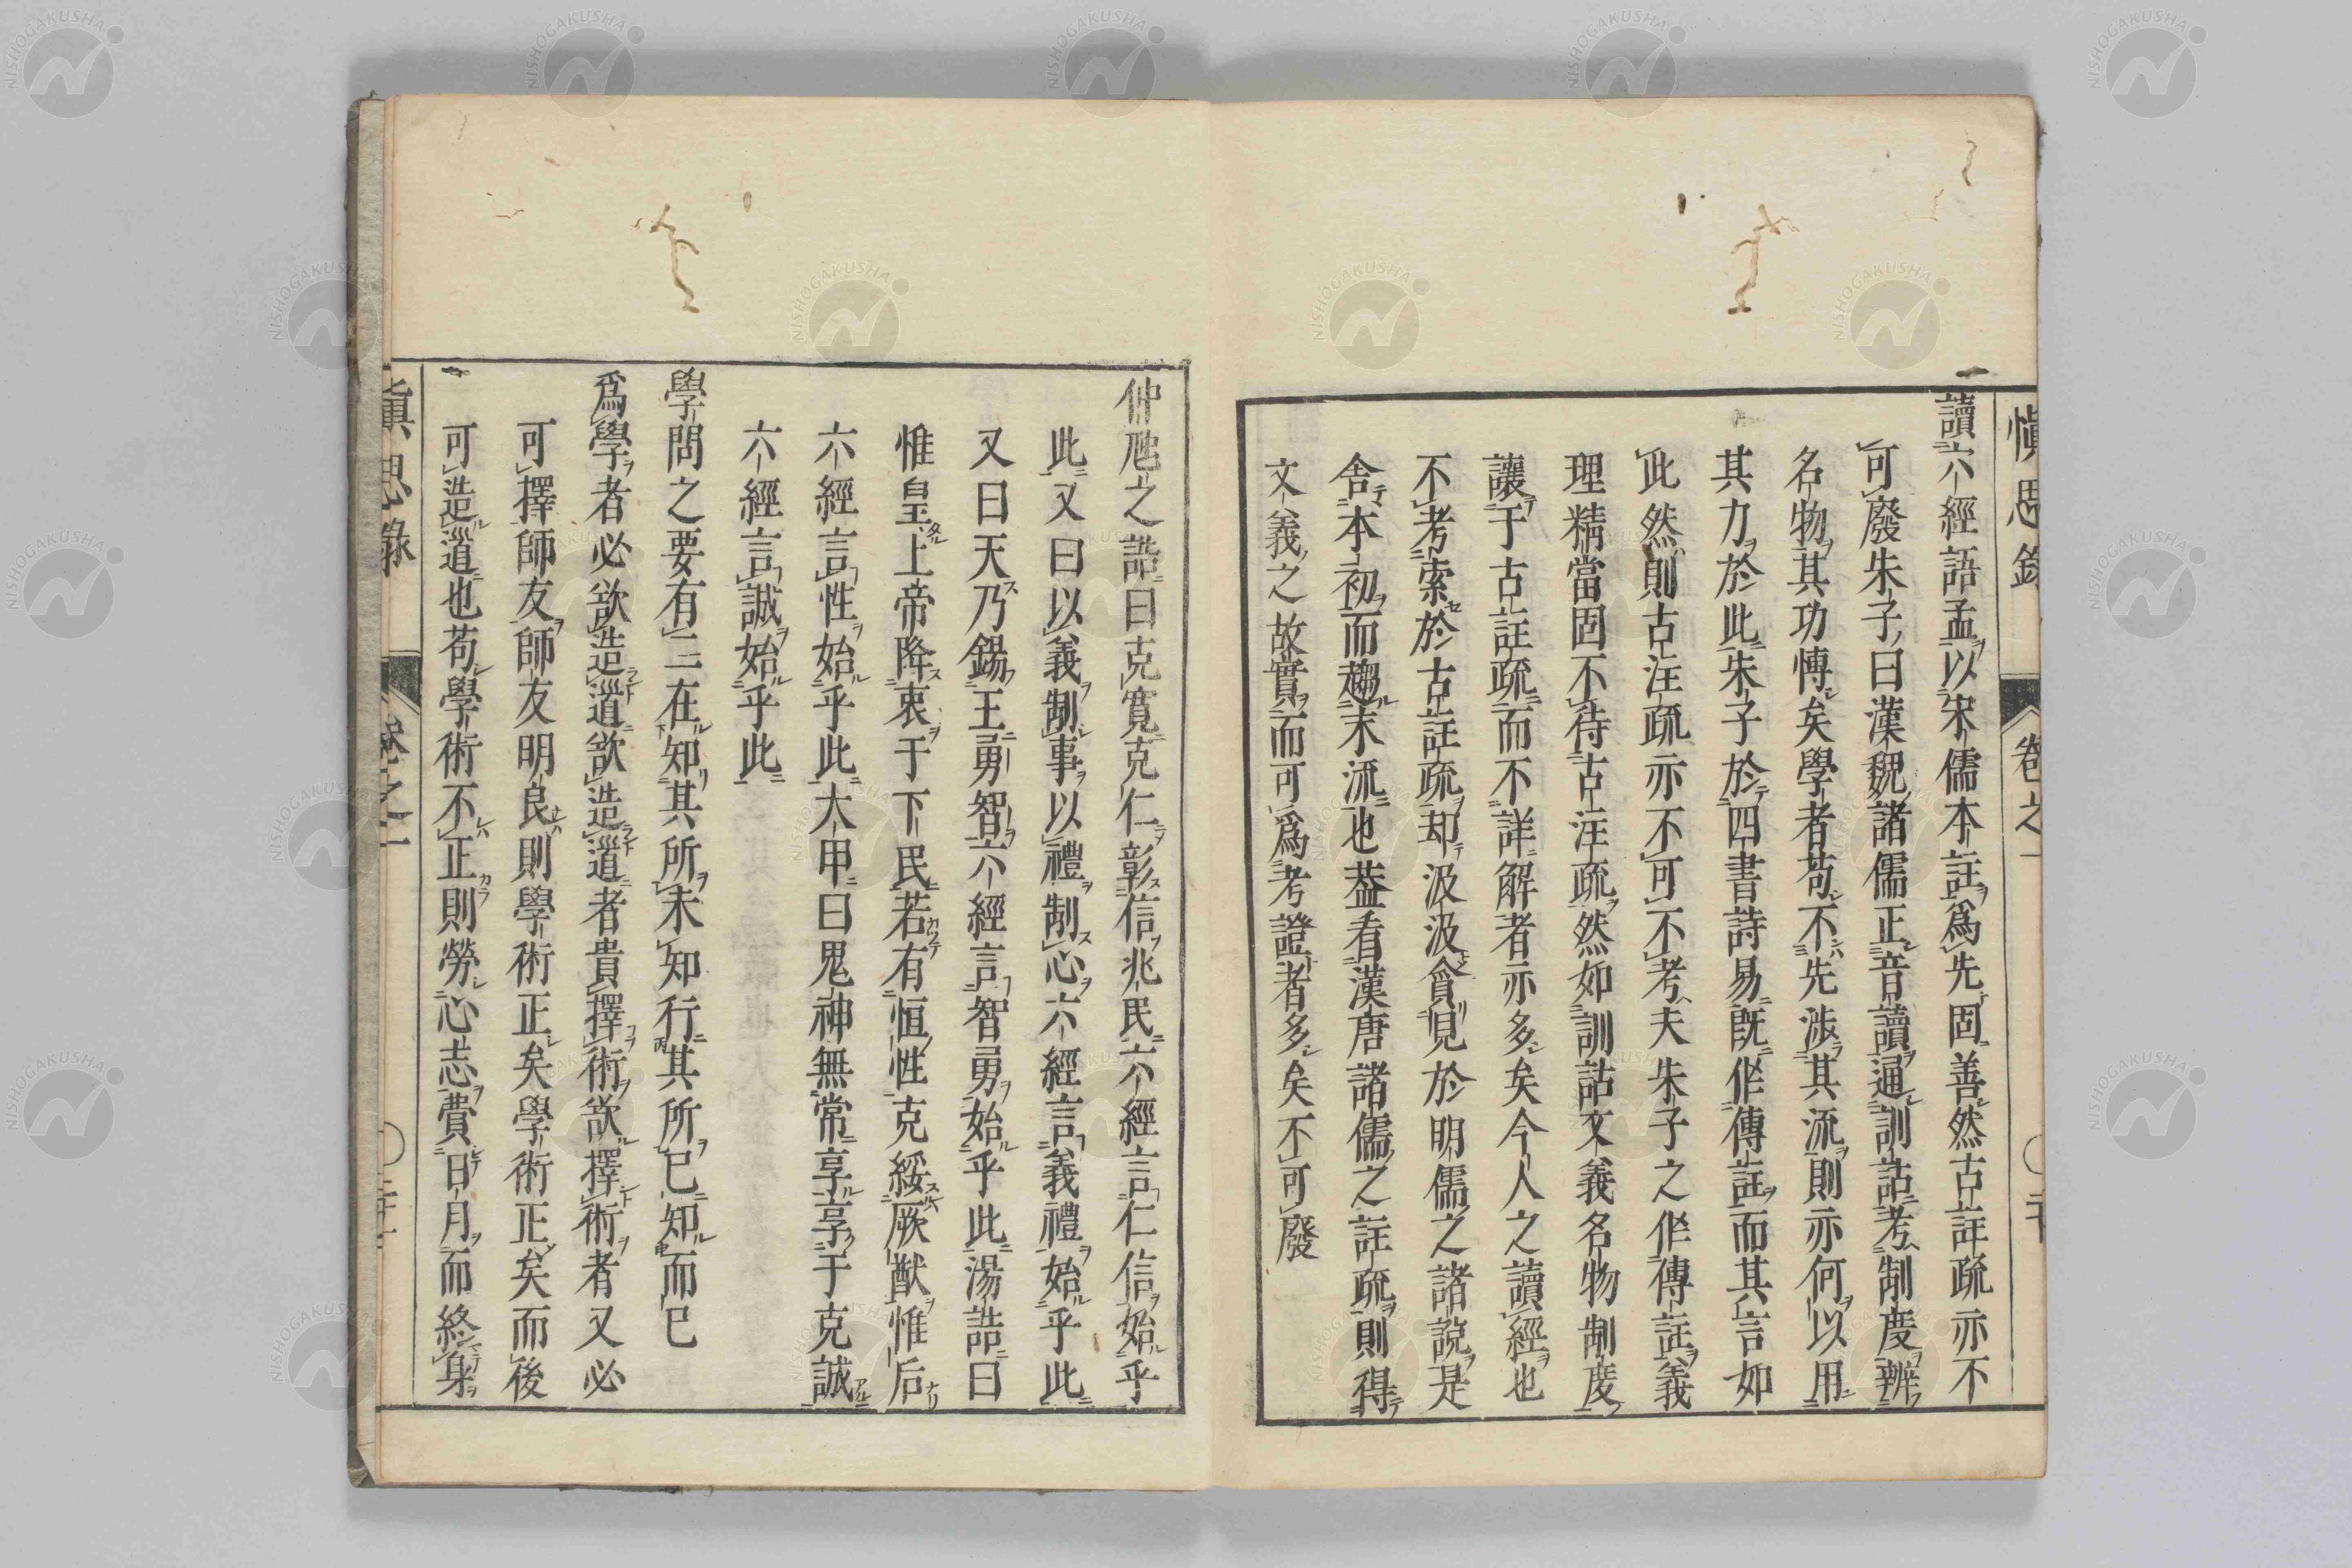 慎思錄 卷之一 ○二十
讀六經語孟以宋儒本註爲先固善然古註疏亦不
可廢朱子曰漢魏諸儒正音讀通訓詁考制度辨
名物其功博矣學者苟不先涉其流則亦何以用
其力於此朱子於四書詩易既作傳註而其言如
此然則古注疏亦不可不考夫朱子之作傳註義
理精當固不待古注疏然如訓詁文義名物制度
讓于古註疏而不詳解者亦多矣今人之讀經也
不考索於古註疏却汲汲貪見於明儒之諸說是
舍本初而趨末流也蓋看漢唐諸儒之註疏則得
文義之故實而可爲考證者多矣不可廢
仲虺之誥曰克寛克仁彰信兆民六經言仁信始乎
此又曰以義制事以禮制心六經言義禮始乎此
又曰天乃錫王勇智六經言智勇始乎此湯誥曰
惟皇上帝降衷于下民若有恒性克綏厥猷惟后
六經言性始乎此大甲曰鬼神無常享享于克誠
六經言誠始乎此
學問之要有二在知其所未知行其所已知而已
爲學者必欲造道欲造道者貴擇術欲擇術者又必
可擇師友師友明良則學術正矣學術正矣而後
可造道也苟學術不正則勞心志費日月而終身
慎思錄 卷之一
NISHOGAKUSHA